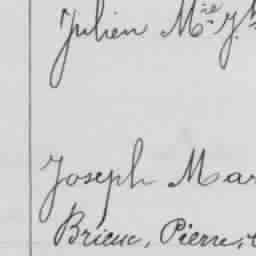 Julien Mie J.
Joseph Mar
Brieuc, Pierre,